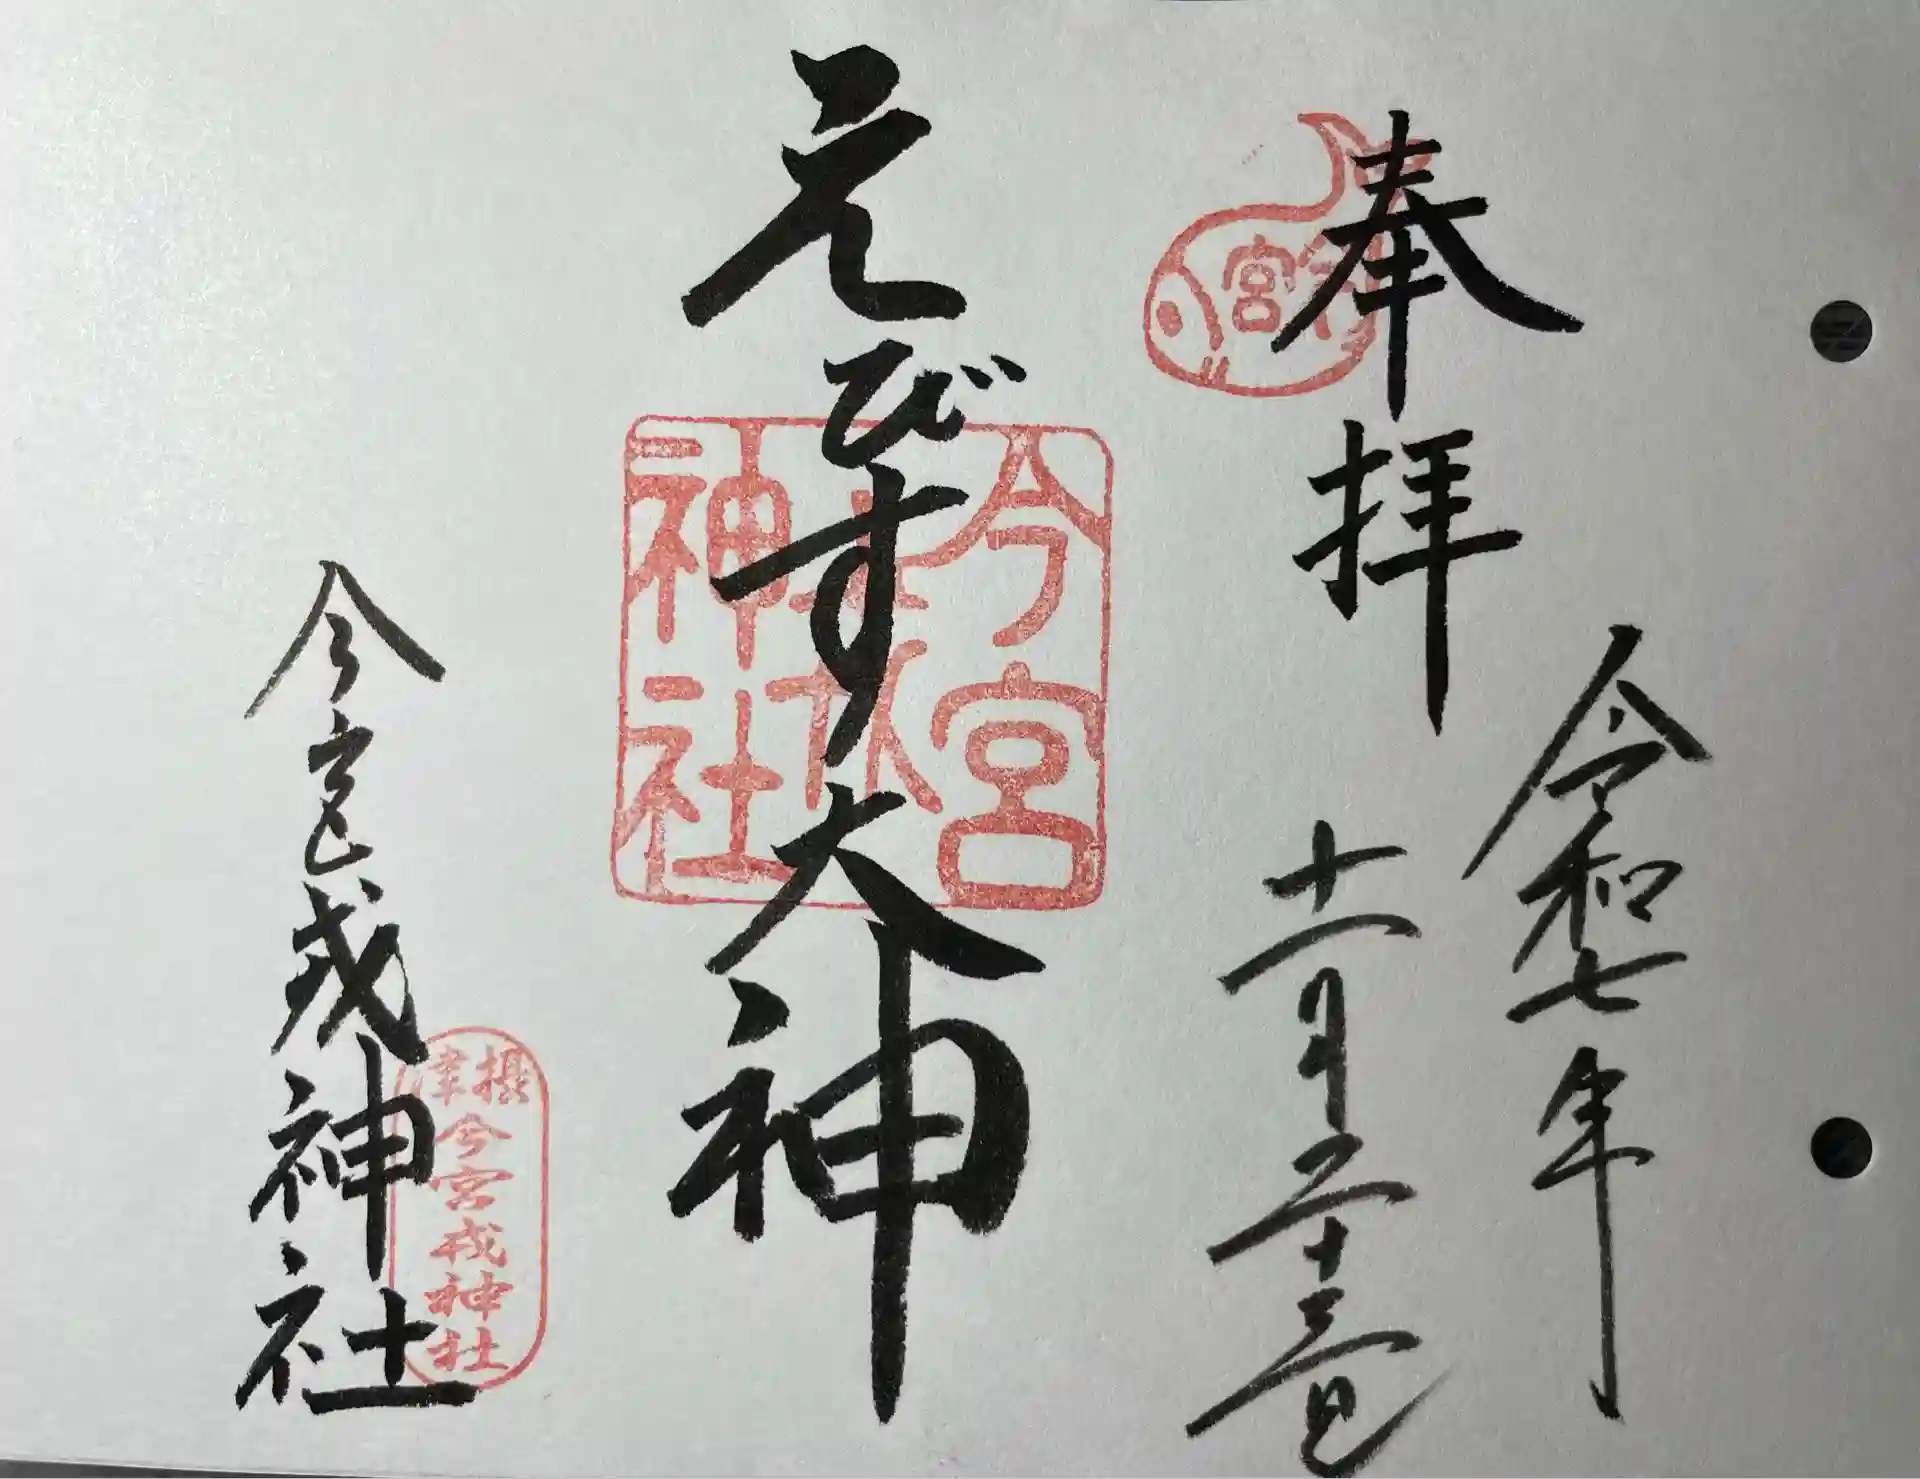 奉拝
令和七年
十一月二十三日
宮
えびす大神
今宮
戎
神社
今宮戎神社
摂津
今宮戎神社